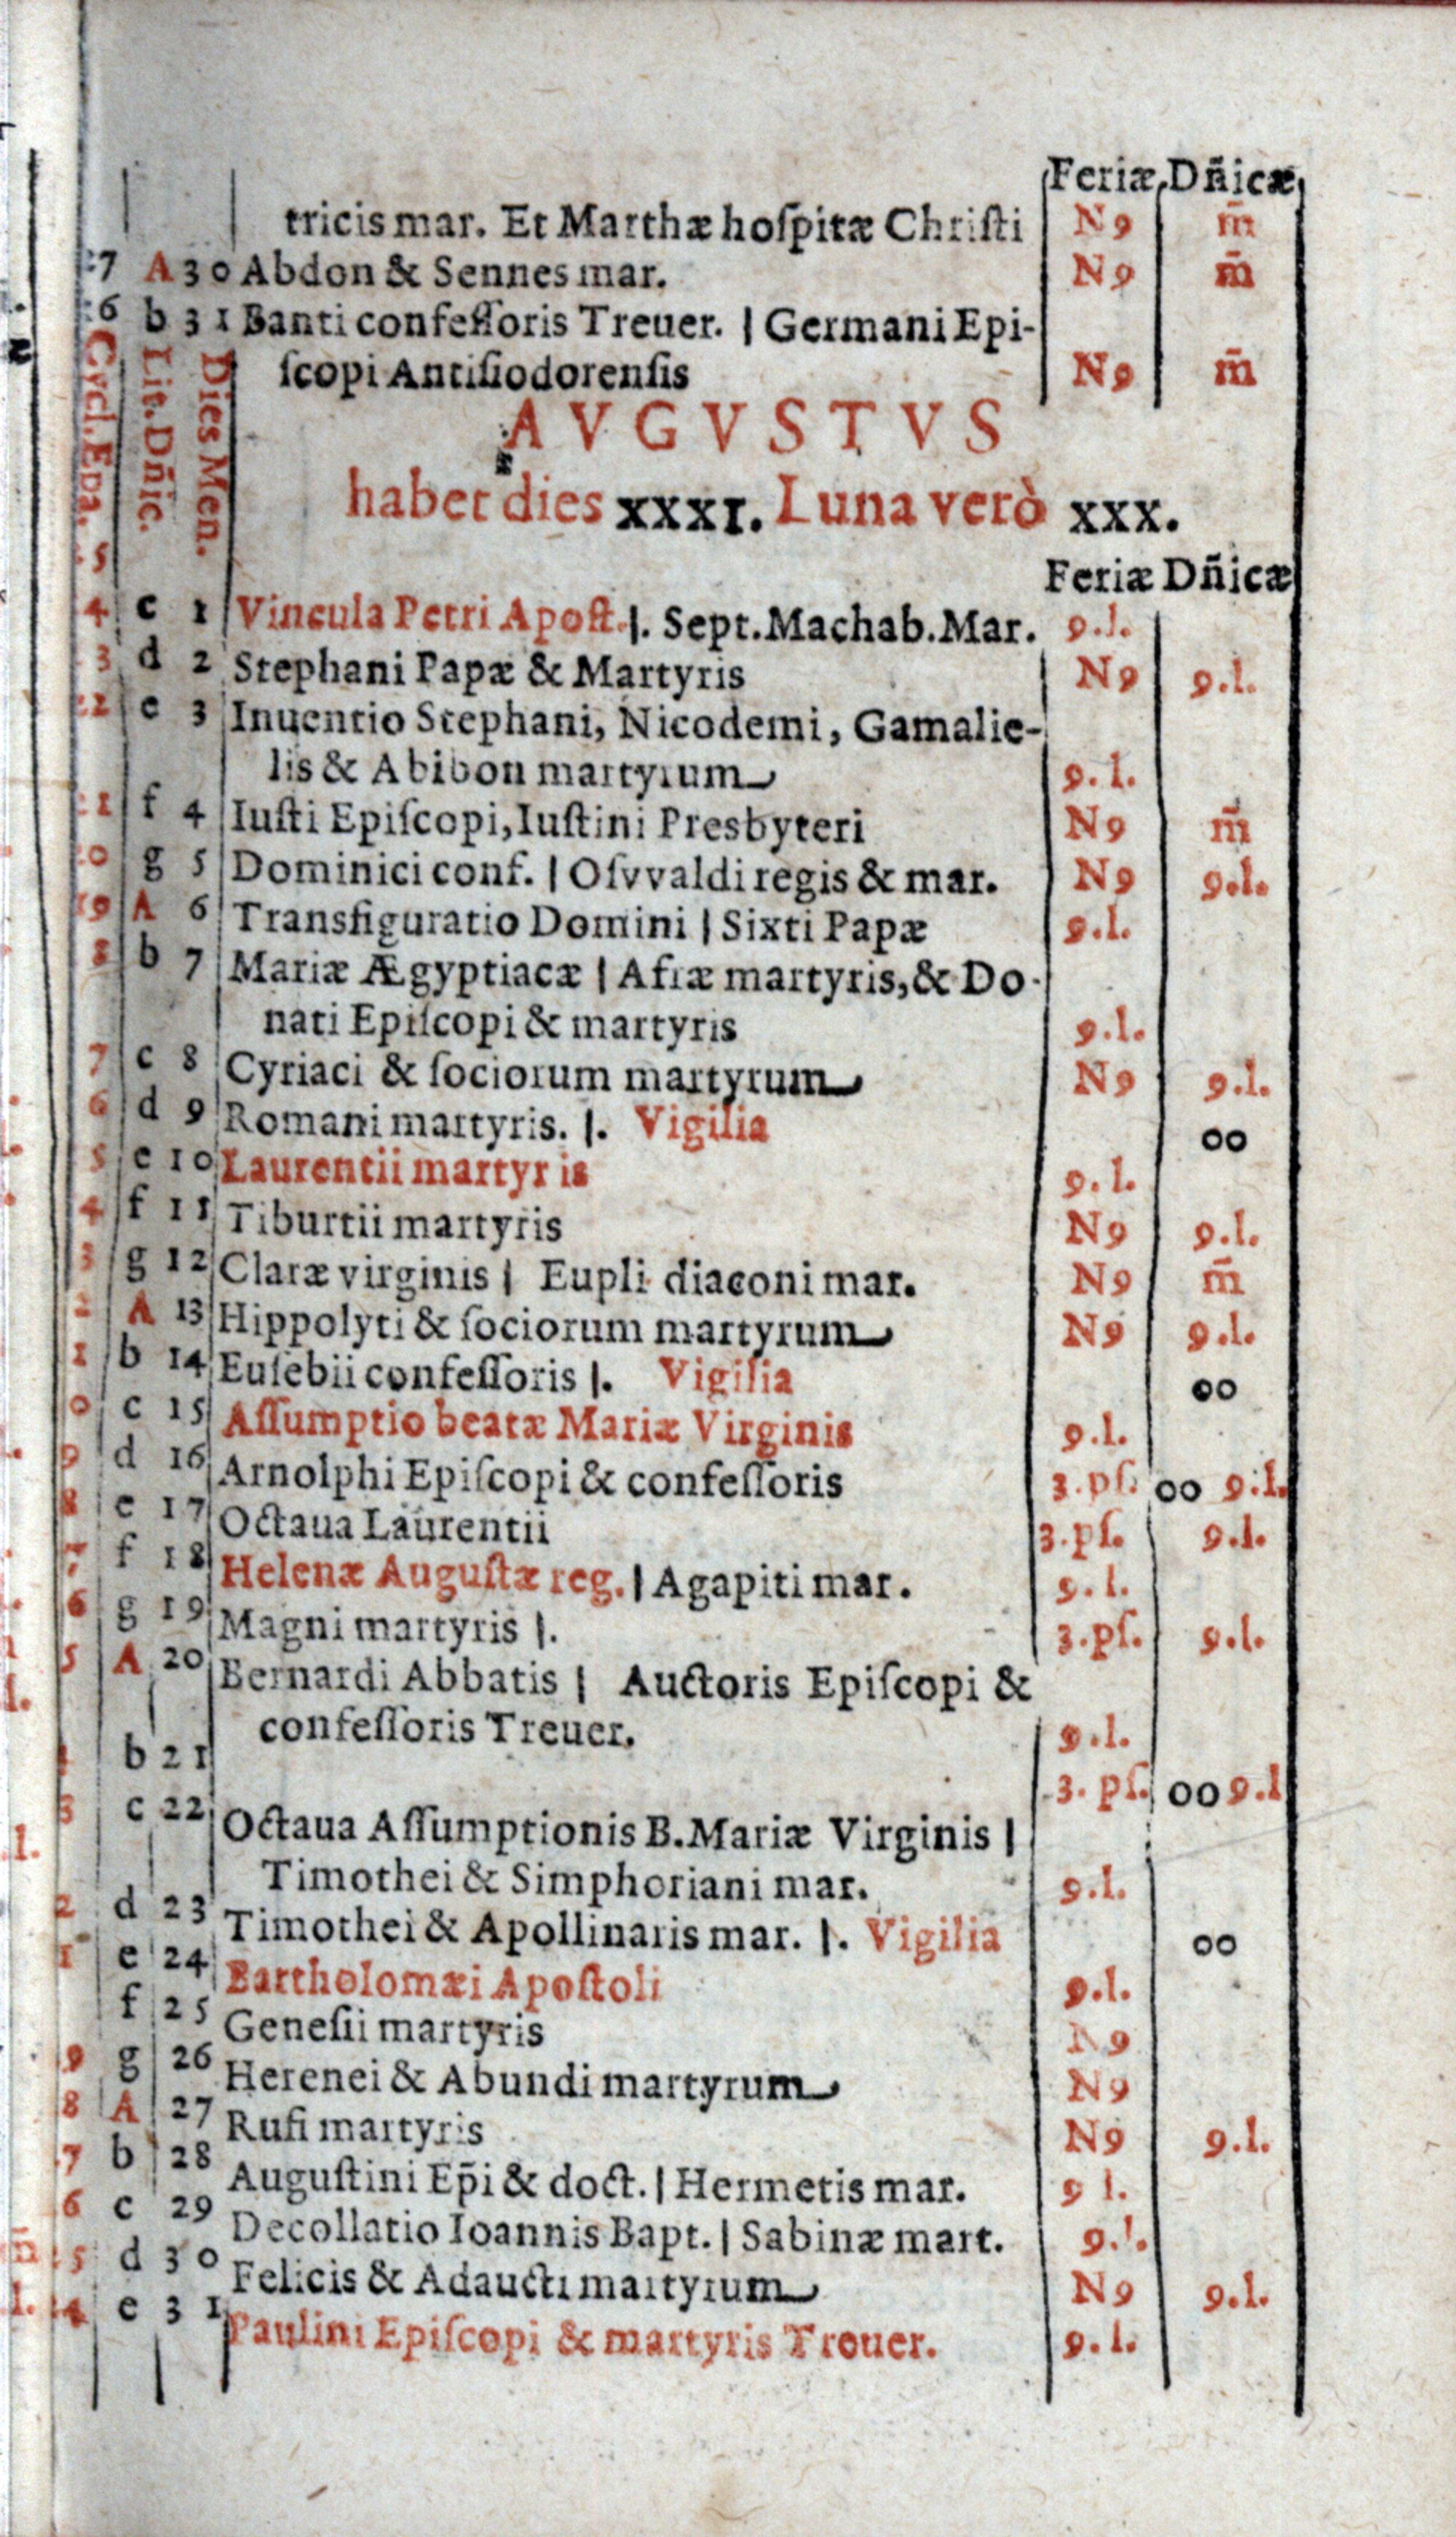 Feriæ Dñicæ
tricis mar. Et Marthæ hoſpitæ Chriſti N9 m̄
7 A 30 Abdon & Sennes mar. N9 m̄
6 b 31 Banti confeſſoris Treuer. | Germani Epi-
ſcopi Antiſiodorenſis N9 m̄
Cycl. Epa. Lit. Dñic. Dies Men.
AVGVSTVS
habet dies XXXI. Luna verò XXX.
5 Feriæ Dñicæ
4 c 1 Vincula Petri Apoſt. |. Sept. Machab. Mar. 9.l.
3 d 2 Stephani Papæ & Martyris N9 9.l.
22 e 3 Inuentio Stephani, Nicodemi, Gamalie-
lis & Abibon martyrum 9.l.
21 f 4 Iuſti Epiſcopi, Iuſtini Presbyteri N9 m̄
20 g 5 Dominici conf. | Oſvvaldi regis & mar. N9 9.l.
19 A 6 Transfiguratio Domini | Sixti Papæ 9.l.
8 b 7 Mariæ Ægyptiacæ | Afræ martyris, & Do-
nati Epiſcopi & martyris 9.l.
7 c 8 Cyriaci & ſociorum martyrum N9 9.l.
6 d 9 Romani martyris. |. Vigilia oo
5 e 10 Laurentii martyris 9.l.
4 f 11 Tiburtii martyris N9 9.l.
3 g 12 Claræ virginis | Eupli diaconi mar. N9 m̄
2 A 13 Hippolyti & ſociorum martyrum N9 9.l.
1 b 14 Euſebii confeſſoris |. Vigilia oo
0 c 15 Aſſumptio beatæ Mariæ Virginis 9.l.
9 d 16 Arnolphi Epiſcopi & confeſſoris 3.pſ. oo 9.l.
8 e 17 Octaua Laurentii 3.pſ. 9.l.
7 f 18 Helenæ Auguſtæ reg. | Agapiti mar. 9.l.
6 g 19 Magni martyris |. 3.pſ. 9.l.
5 A 20 Bernardi Abbatis | Auctoris Epiſcopi &
confeſſoris Treuer. 9.l.
b 21 3.pſ. oo 9.l
3 c 22 Octaua Aſſumptionis B. Mariæ Virginis |
Timothei & Simphoriani mar. 9.l.
2 d 23 Timothei & Apollinaris mar. |. Vigilia oo
1 e 24 Bartholomæi Apoſtoli 9.l.
f 25 Geneſii martyris N9
9 g 26 Herenei & Abundi martyrum N9
8 A 27 Rufi martyris N9 9.l.
7 b 28 Auguſtini Ep̃i & doct. | Hermetis mar. 9 l.
6 c 29 Decollatio Ioannis Bapt. | Sabinæ mart. 9.l.
5 d 30 Felicis & Adaucti martyrum N9 9.l.
4 e 31 Paulini Epiſcopi & martyris Treuer. 9.l.